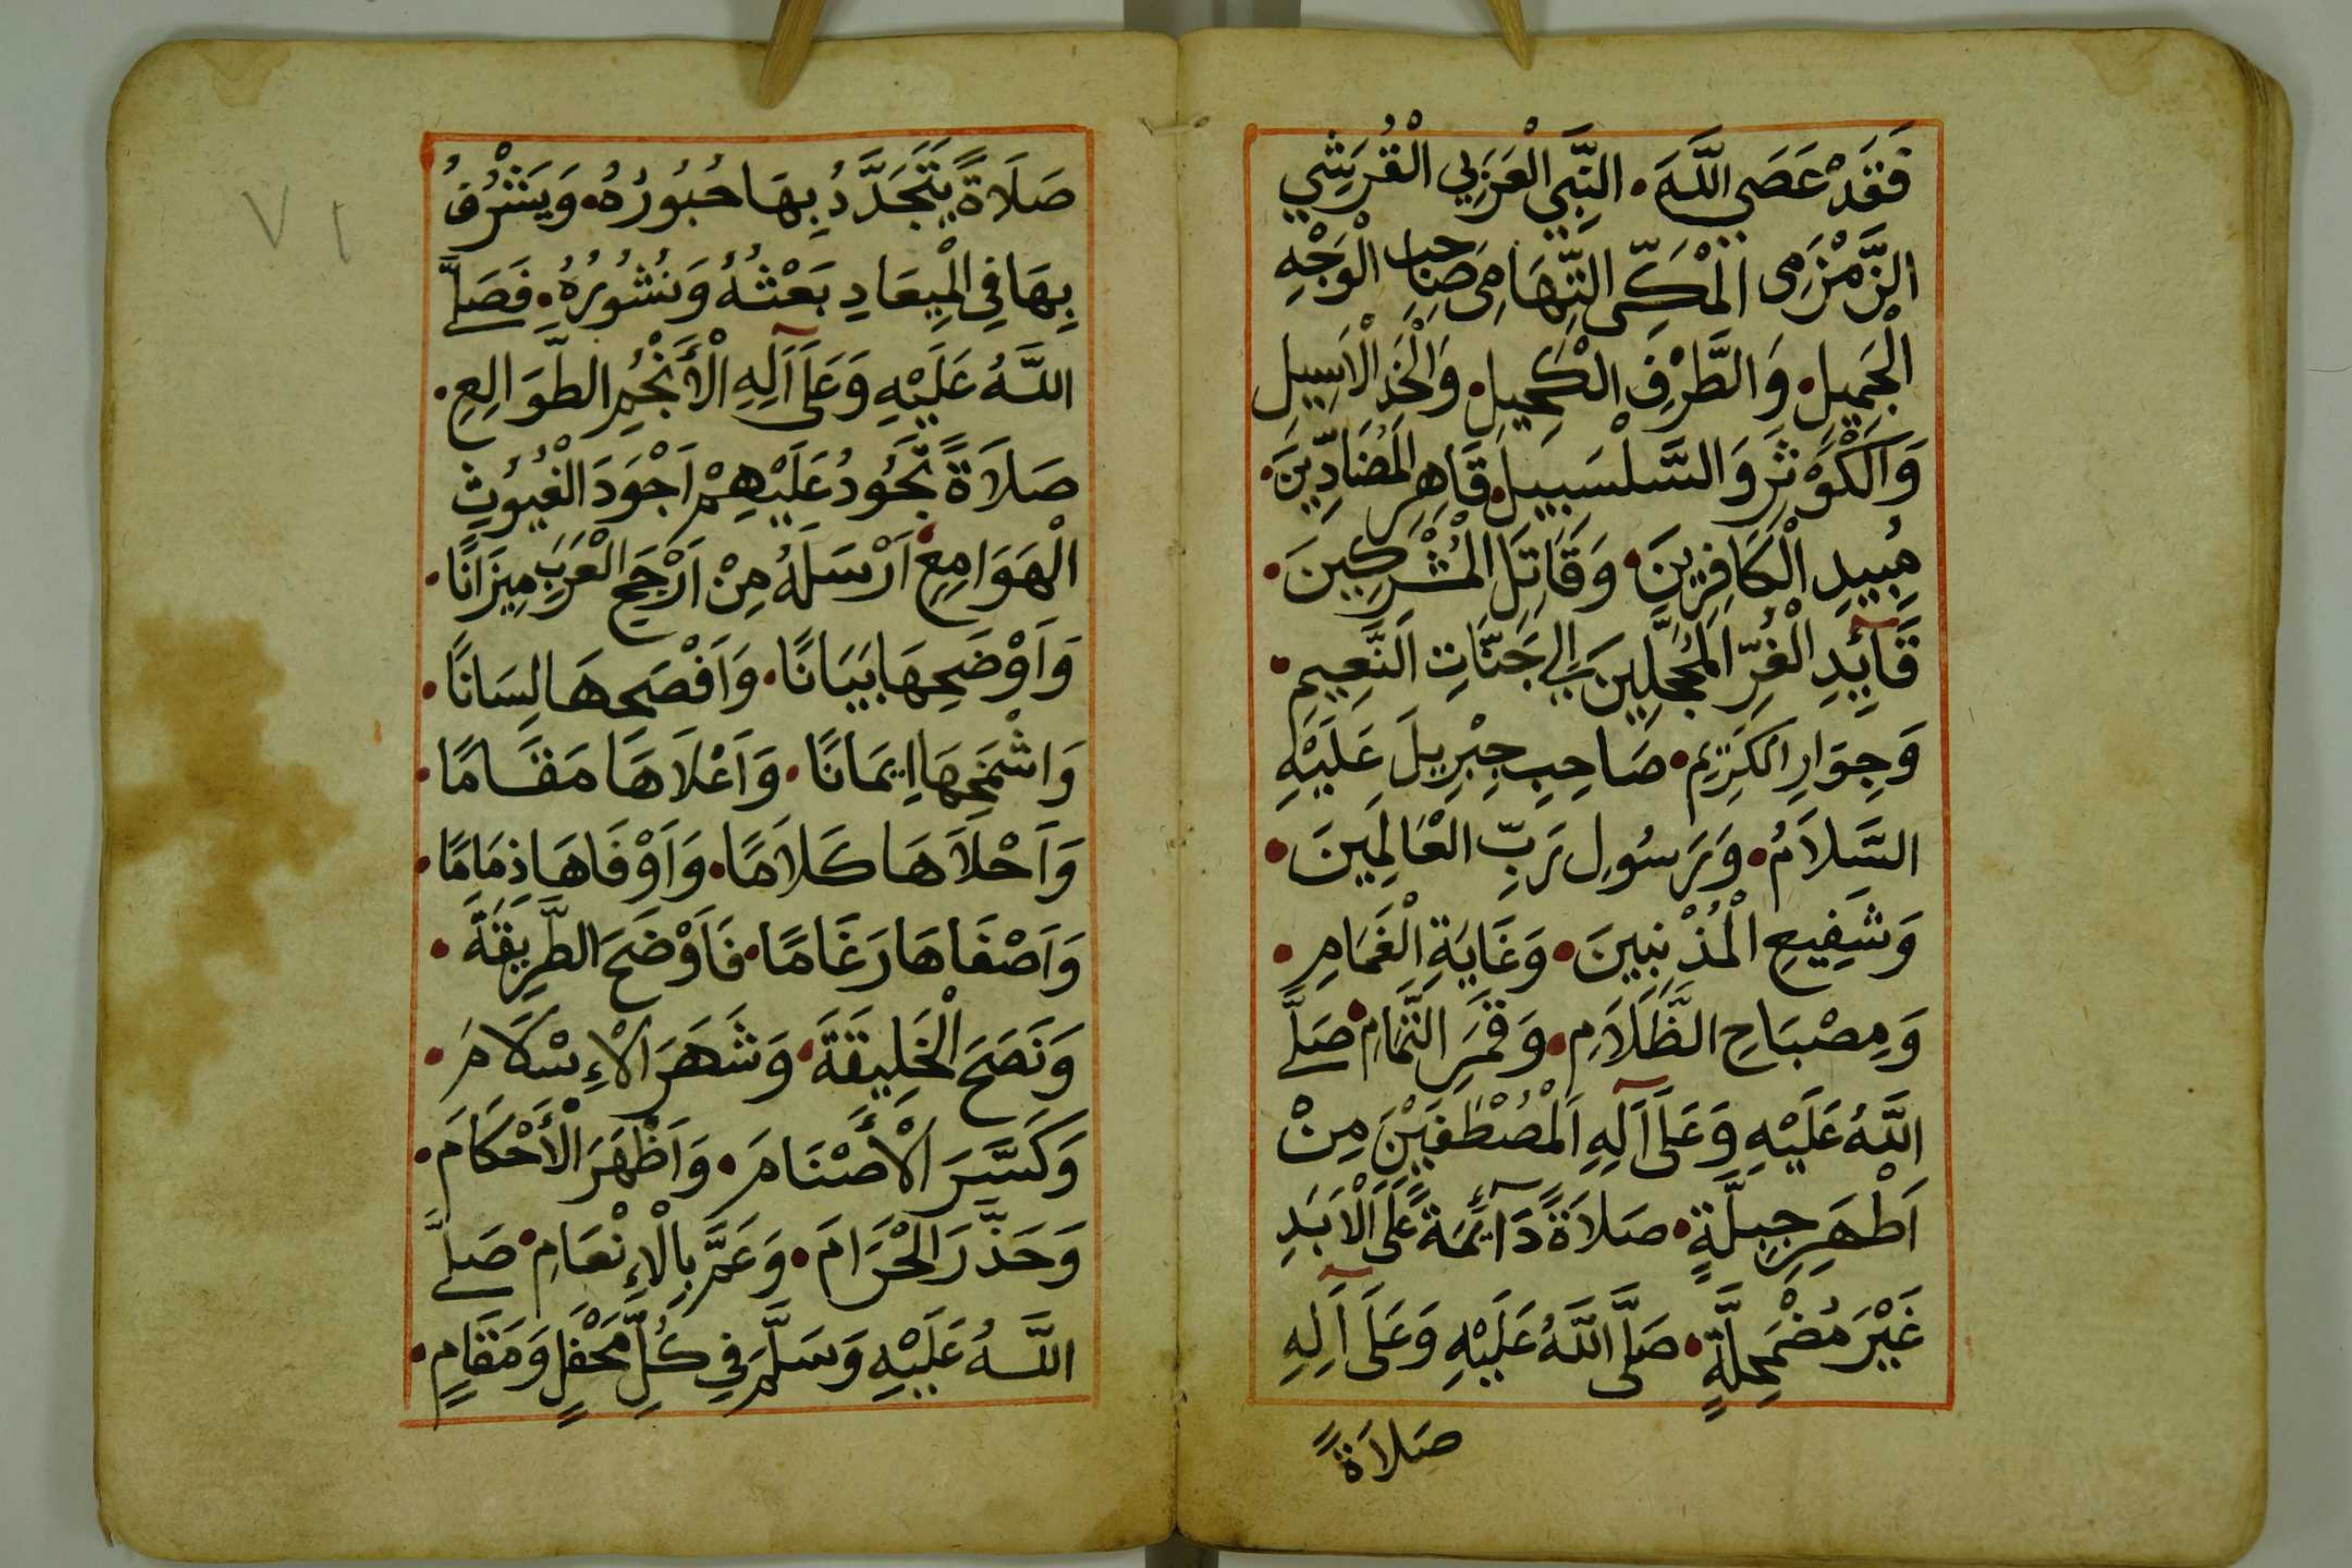 فَقَدْ عَصَى اللَّهَ • النَّبِيِّ الْعَرَبِيِّ الْقُرَيْشِيِّ
الزَّمْزَمِي الْمَكِّيِّ التِّهَامِي صَاحِبِ الْوَجْهِ
الْجَمِيلِ • وَالطَّرْفِ الْكَحِيلِ • وَالْخَدِّ الْاَسِيلِ
وَالْكَوْثَرِ وَالسَّلْسَبِيلِ • قَاهِرِ الْمُضَادِّينَ •
مُبِيدِ الْكَافِرِينَ • وَقَاتِلِ الْمُشْرِكِينَ •
قَآئِدِ الْغُرِّ الْمُحَجَّلِينَ اِلَى جَنَّاتِ النَّعِيمِ •
وَجِوَارِ الْكَرِيمِ • صَاحِبِ جِبْرِيلَ عَلَيْهِ
السَّلَامُ • وَرَسُولِ رَبِّ الْعَالَمِينَ •
وَشَفِيعِ الْمُذْنِبِينَ • وَغَايَةِ الْغَمَامِ •
وَمِصْبَاحِ الظَّلَامِ • وَقَمَرِ التَّمَامِ • صَلَّى
اللَّهُ عَلَيْهِ وَعَلَى آلِهِ الْمُصْطَفَيْنَ مِنْ
اَطْهَرِ جِبِلَّةٍ • صَلَاةً دَآئِمَةً عَلَى الْاَبَدِ
غَيْرَ مُضْمَحِلَّةٍ • صَلَّى اللَّهُ عَلَيْهِ وَعَلَى آلِهِ
صَلَاةً
٧١
صَلَاةً يَتَجَدَّدُ بِهَا حُبُورُهُ • وَيَشْرُفُ
بِهَا فِي الْمِيعَادِ بَعْثُهُ وَنُشُورُهُ • فَصَلَّى
اللَّهُ عَلَيْهِ وَعَلَى آلِهِ الْأَنْجُمِ الطَّوَالِعِ •
صَلَاةً تَجُودُ عَلَيْهِمْ اَجْوَدَ الْغُيُوثِ
الْهَوَامِعِ • اَرْسَلَهُ مِنْ اَرْجَحِ الْعَرَبِ مِيزَانًا •
وَاَوْضَحِهَا بَيَانًا • وَاَفْصَحِهَا لِسَانًا •
وَاشْمَخِهَا اِيمَانًا • وَاَعْلَاهَا مَقَامًا •
وَاَحْلَاهَا كَلَامًا • وَاَوْفَاهَا ذِمَامًا •
وَاَصْفَاهَا رَغَامًا • فَاَوْضَحَ الطَّرِيقَةَ •
وَنَصَحَ الْخَلِيقَةَ • وَشَهَرَ الْإِسْلَامَ •
وَكَسَّرَ الْأَصْنَامَ • وَاَظْهَرَ الْأَحْكَامَ •
وَحَذَّرَ الْحَرَامَ • وَعَمَّ بِالْإِنْعَامِ • صَلَّى
اللَّهُ عَلَيْهِ وَسَلَّمَ فِي كُلِّ مَحْفَلٍ وَمَقَامٍ •